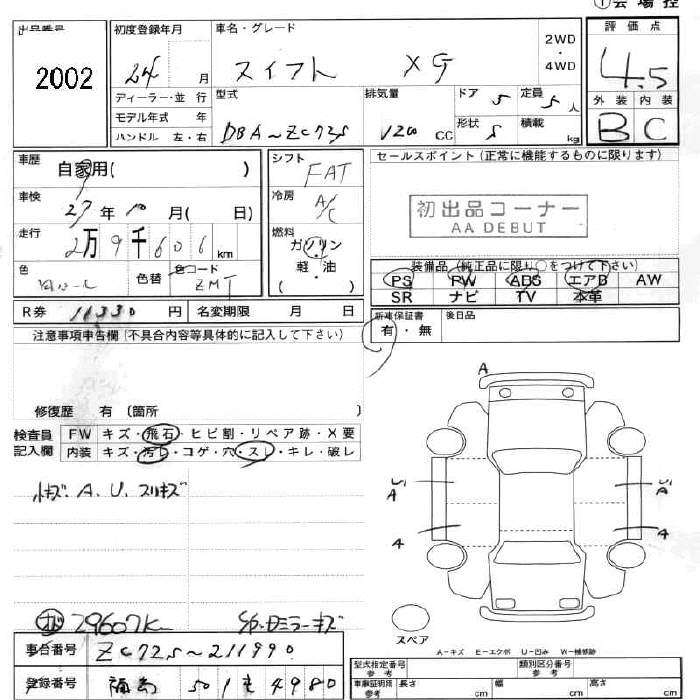 ①会場控
出品番号 初度登録年月 車名・グレード 評価点
2002 24 月 スイフト XG 2WD・4WD 4.5
ディーラー・並行 型式 排気量 ドア 5 定員 5人 外装 内装
モデル年式 年 DBA~ZC72S 1200 CC 形状 5 積載 kg B C
ハンドル 左・右
車歴 自家用( ) シフト FAT セールスポイント(正常に機能するものに限ります)
車検 27年10月( 日) 冷房 A/C 初出品コーナー
AA DEBUT
走行 2万9千606km 燃料 ガソリン
軽・油
( )
色 色替 色コード ZMT 装備品(純正品に限り○をつけて下さい)
PS PW ABS エアB AW
SR ナビ TV 本革
R券 11330円 名変期限 月 日 新車保証書 有・無 後日品
注意事項申告欄(不具合内容等具体的に記入して下さい)
修復歴 有(箇所 )
検査員 FW キズ・飛石・ヒビ割・リペア跡・X要
記入欄 内装 キズ・汚レ・コゲ・穴・スレ・キレ・破レ
小キズ. A. U. スリキズ
A
A
A
4
4
29607K
車台番号 ZC72S~211990
登録番号 501 4980
スペア
A-キズ E-エクボ U-凹み W-補修跡
型式指定番号 参考 類別区分番号 参考
車検証明照 参考 長さ cm 幅 cm 高さ cm